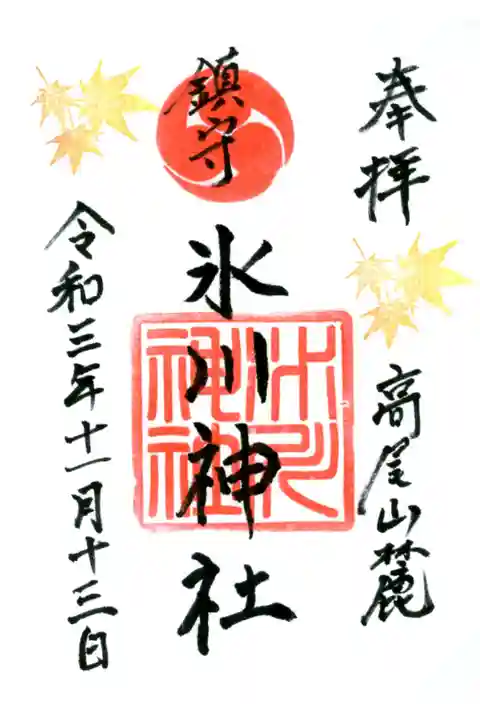 奉拝
高尾山麓
鎮守
氷川神社
氷川神社
令和三年十一月十三日